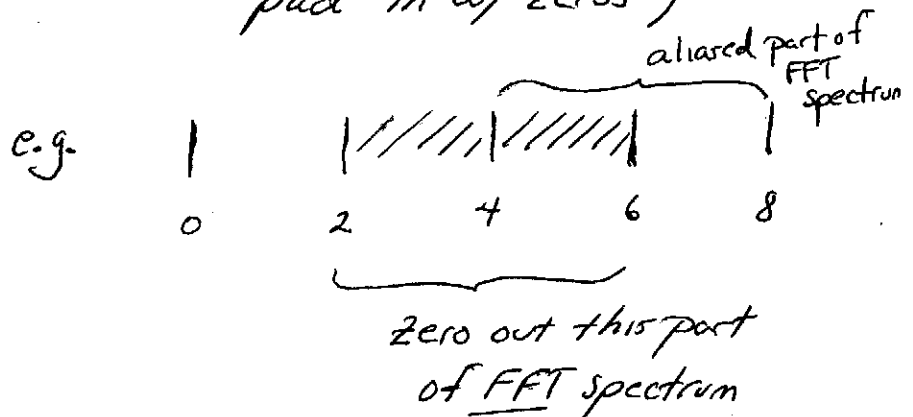 pad in w/ zeros)
aliased part of
FFT
spectrum
e.g.
0 2 4 6 8
Zero out this part
of FFT spectrum